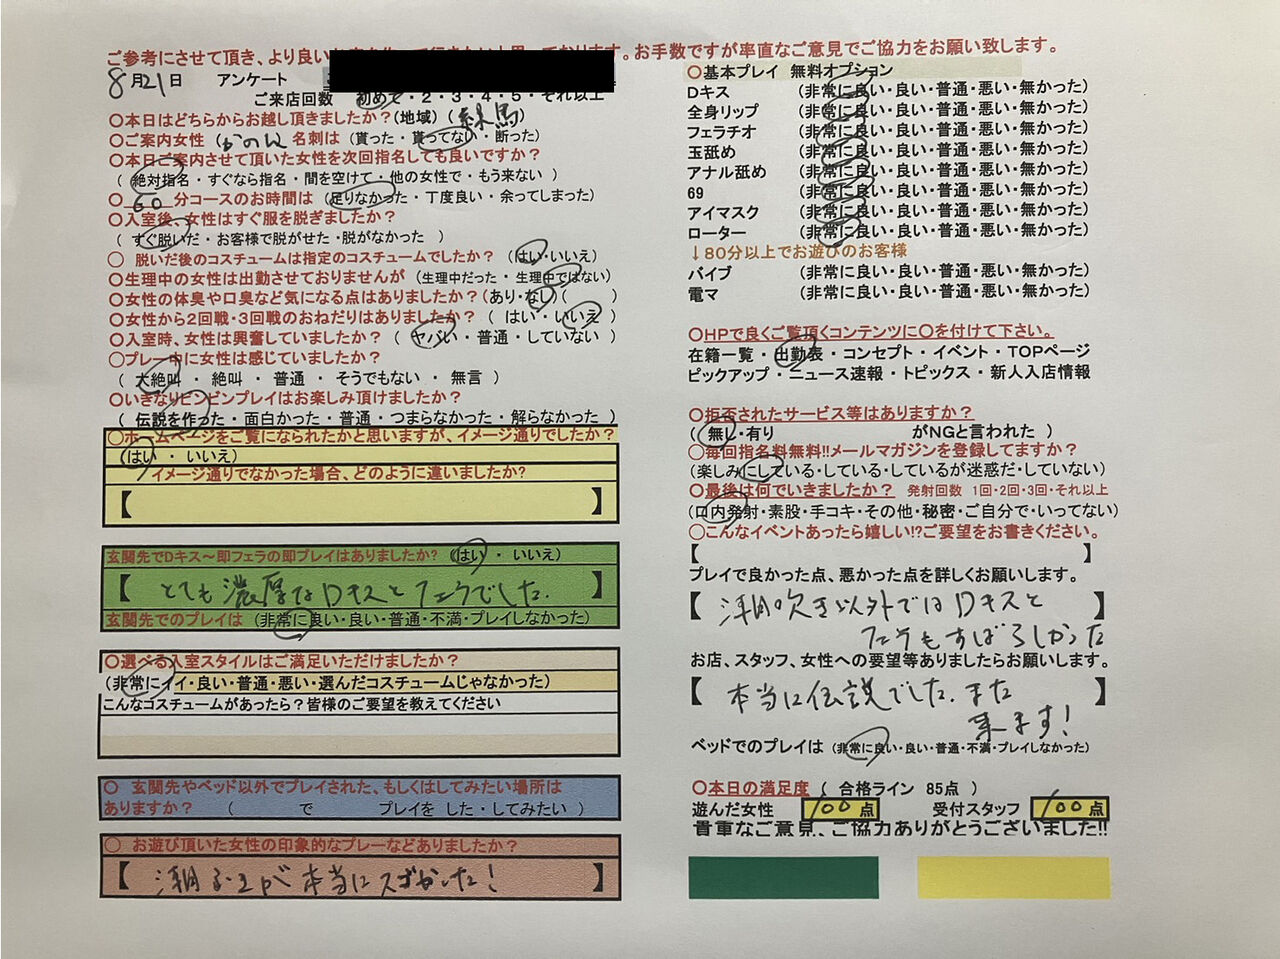 ご参考にさせて頂き、より良い
。お手数ですが率直なご意見でご協力をお願い致します。
8月21日 アンケート
ご来店回数 初めて・2・3・4・5・それ以上
〇本日はどちらからお越し頂きましたか?(地域) (練馬)
〇ご案内女性 ( 名刺は (貰った・貰ってない・断った)
〇本日ご案内させて頂いた女性を次回指名しても良いですか?
( 絶対指名・すぐなら指名・間を空けて・他の女性で・もう来ない )
〇 60 分コースのお時間は (足りなかった・丁度良い・余ってしまった)
〇入室後、女性はすぐ服を脱ぎましたか?
( すぐ脱いだ・お客様で脱がせた・脱がなかった )
〇 脱いだ後のコスチュームは指定のコスチュームでしたか? (はい・いいえ)
〇生理中の女性は出勤させておりませんが (生理中だった・生理中ではない)
〇女性の体臭や口臭など気になる点はありましたか?(あり・なし)( )
〇女性から2回戦・3回戦のおねだりはありましたか? ( はい・いいえ )
〇入室時、女性は興奮していましたか? ( ヤバい・普通・していない )
〇プレー中に女性は感じていましたか?
( 大絶叫 ・ 絶叫 ・ 普通 ・ そうでもない ・ 無言 )
〇いきなりビンビンプレイはお楽しみ頂けましたか?
( 伝説を作った・面白かった・普通・つまらなかった・解らなかった )
〇ホームページをご覧になられたかと思いますが、イメージ通りでしたか?
(はい ・ いいえ)
イメージ通りでなかった場合、どのように違いましたか?
【 】
玄関先でDキス〜即フェラの即プレイはありましたか? (はい ・ いいえ)
【 とても濃厚なDキスとフェラでした. 】
玄関先でのプレイは (非常に良い・良い・普通・不満・プレイしなかった)
〇選べる入室スタイルはご満足いただけましたか?
(非常にイイ・良い・普通・悪い・選んだコスチュームじゃなかった)
こんなコスチュームがあったら?皆様のご要望を教えてください
〇 玄関先やベッド以外でプレイされた、もしくはしてみたい場所は
ありますか? ( で プレイを した・してみたい )
〇 お遊び頂いた女性の印象的なプレーなどありましたか?
【 潮ふきが本当にスゴかった! 】
〇基本プレイ 無料オプション
Dキス (非常に良い・良い・普通・悪い・無かった)
全身リップ (非常に良い・良い・普通・悪い・無かった)
フェラチオ (非常に良い・良い・普通・悪い・無かった)
玉舐め (非常に良い・良い・普通・悪い・無かった)
アナル舐め (非常に良い・良い・普通・悪い・無かった)
69 (非常に良い・良い・普通・悪い・無かった)
アイマスク (非常に良い・良い・普通・悪い・無かった)
ローター (非常に良い・良い・普通・悪い・無かった)
↓80分以上でお遊びのお客様
バイブ (非常に良い・良い・普通・悪い・無かった)
電マ (非常に良い・良い・普通・悪い・無かった)
〇HPで良くご覧頂くコンテンツに〇を付けて下さい。
在籍一覧・出勤表・コンセプト・イベント・TOPページ
ピックアップ・ニュース速報・トピックス・新人入店情報
〇拒否されたサービス等はありますか?
( 無し・有り がNGと言われた )
〇毎回指名料無料!!メールマガジンを登録してますか?
(楽しみにしている・している・しているが迷惑だ・していない)
〇最後は何でいきましたか? 発射回数 1回・2回・3回・それ以上
(口内発射・素股・手コキ・その他・秘密・ご自分で・いってない)
〇こんなイベントあったら嬉しい!?ご要望をお書きください。
【 】
プレイで良かった点、悪かった点を詳しくお願いします。
【 潮吹き以外ではDキスと
フェラもすばらしかった 】
お店、スタッフ、女性への要望等ありましたらお願いします。
【 本当に伝説でした. また
来ます! 】
ベッドでのプレイは (非常に良い・良い・普通・不満・プレイしなかった)
〇本日の満足度 ( 合格ライン 85点 )
遊んだ女性 100点 受付スタッフ 100点
貴重なご意見、ご協力ありがとうございました!!